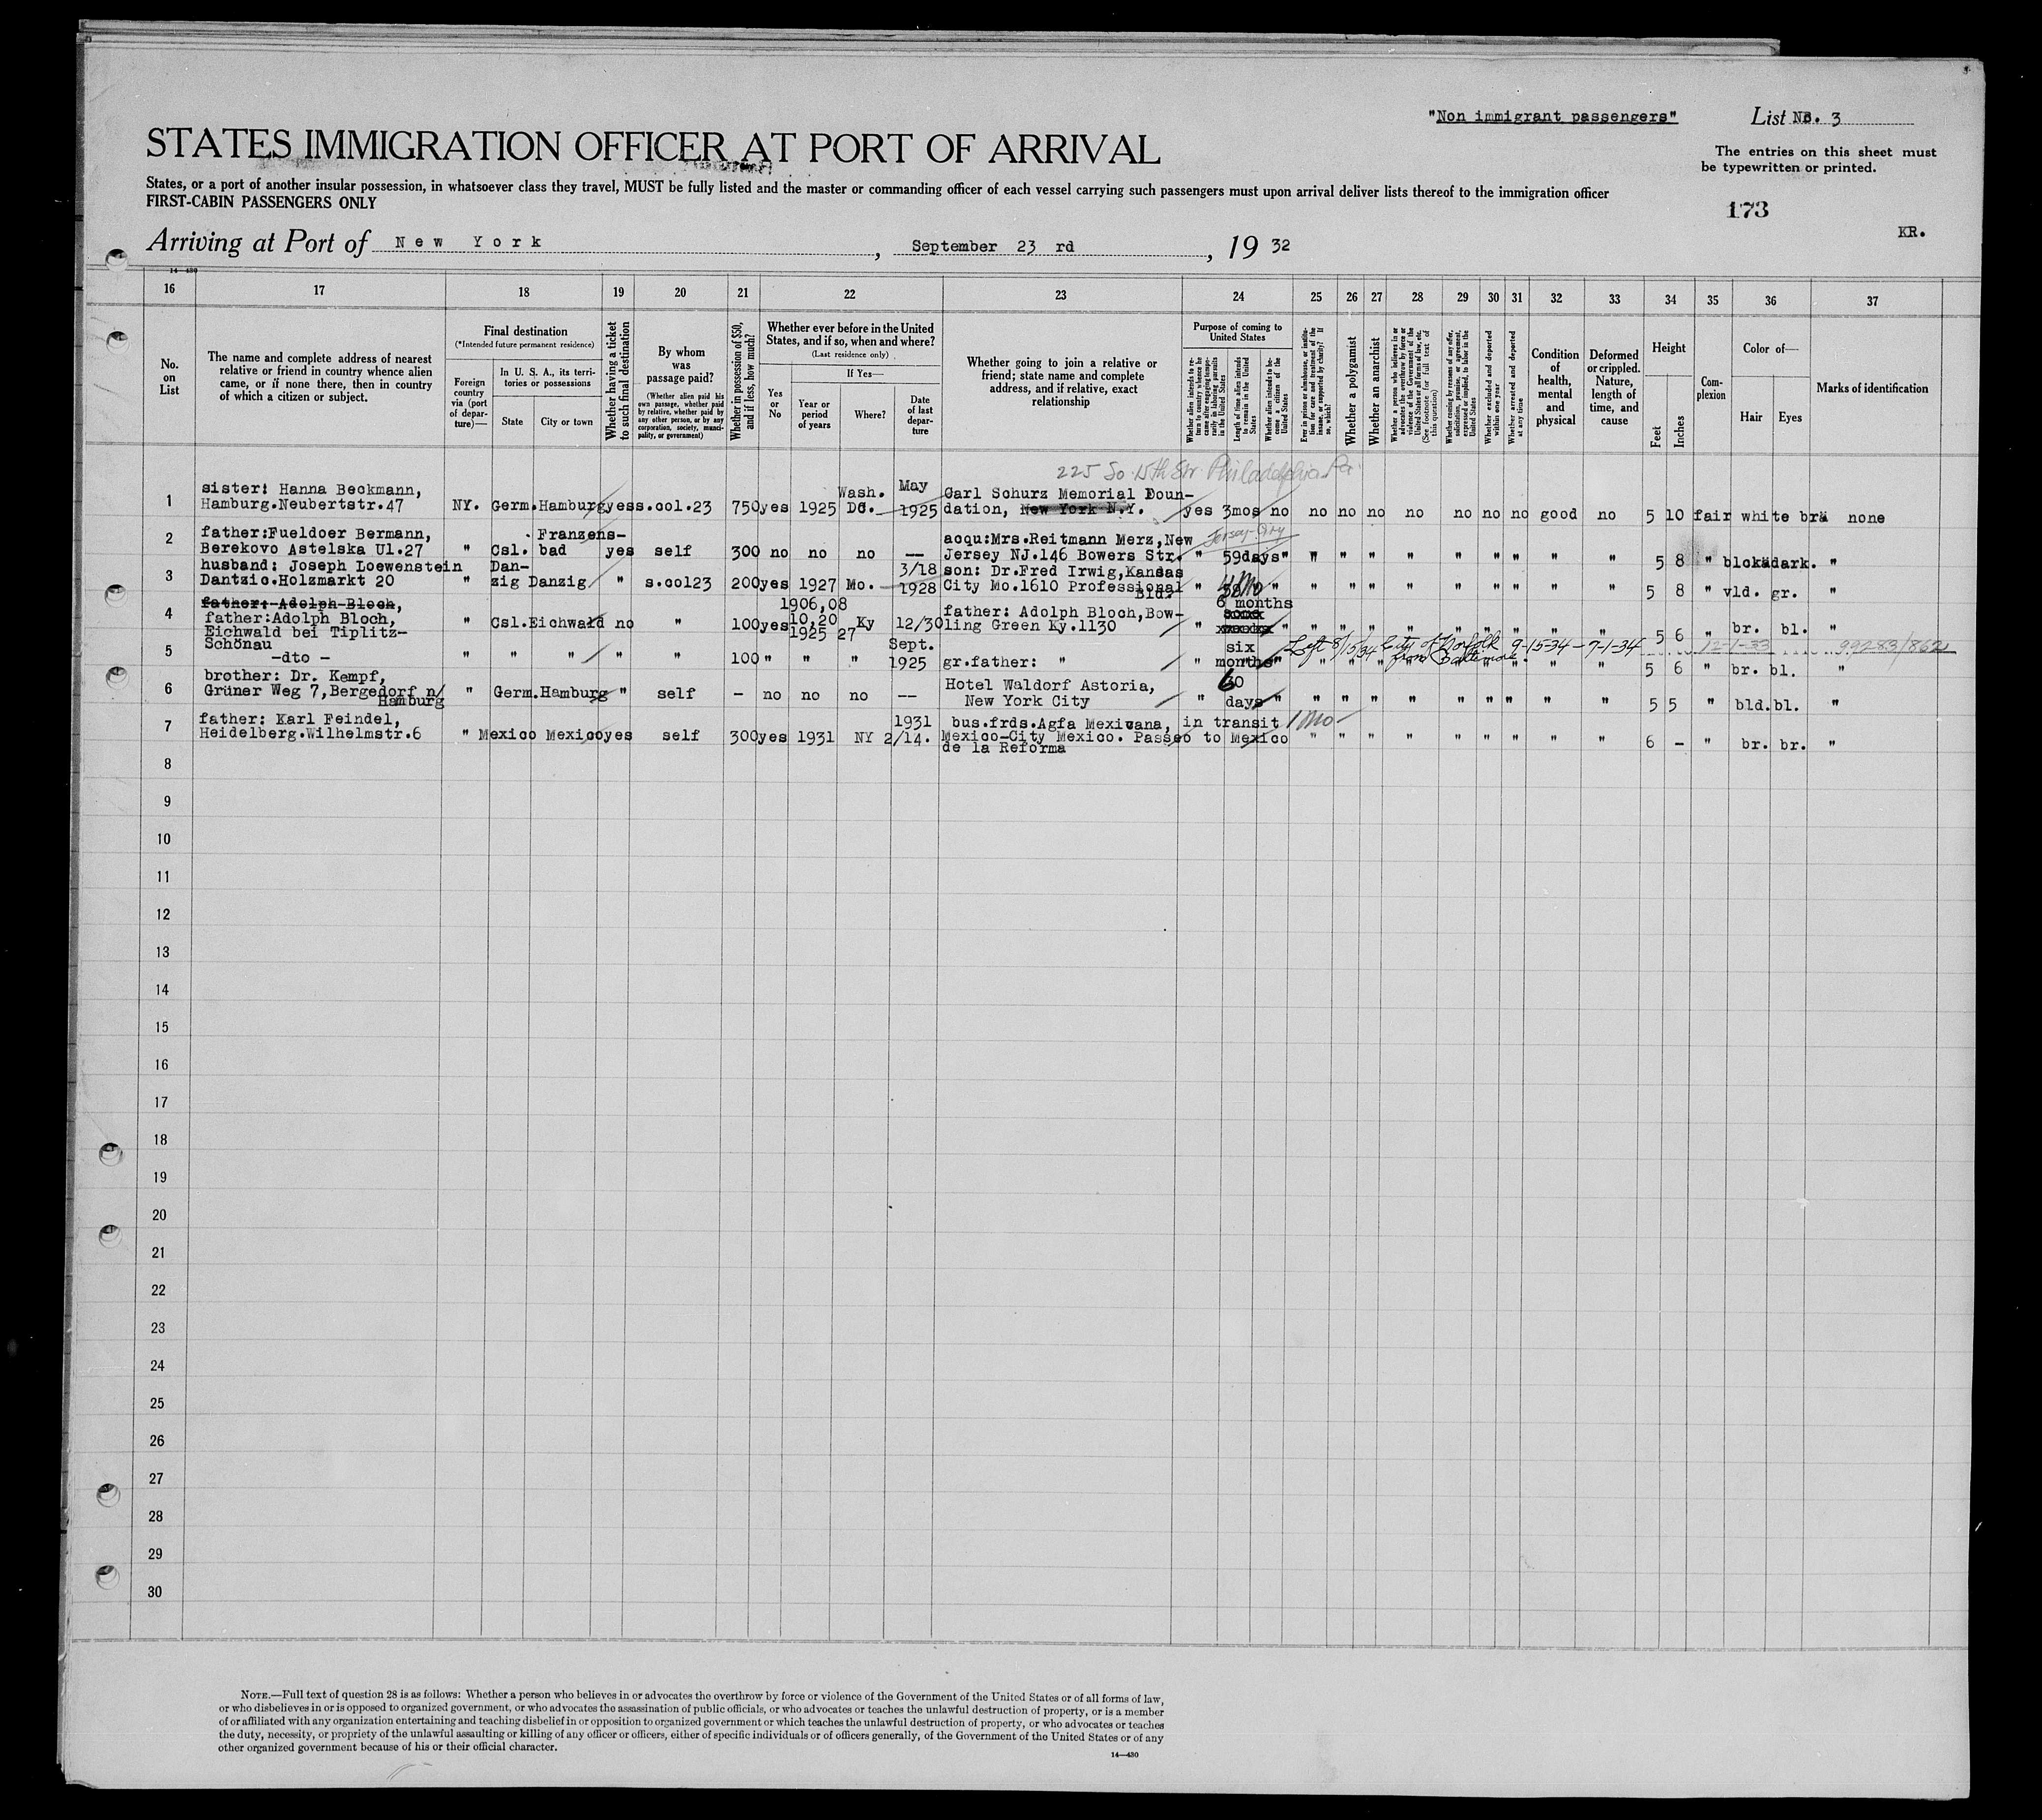 "Non immigrant passengers"
List No. 3
STATES IMMIGRATION OFFICER AT PORT OF ARRIVAL
The entries on this sheet must
be typewritten or printed.
States, or a port of another insular possession, in whatsoever class they travel, MUST be fully listed and the master or commanding officer of each vessel carrying such passengers must upon arrival deliver lists thereof to the immigration officer
FIRST-CABIN PASSENGERS ONLY
173
KR.
Arriving at Port of New York, September 23 rd, 19 32
14—430
16 17 18 19 20 21 22 23 24 25 26 27 28 29 30 31 32 33 34 35 36 37
No. on List
The name and complete address of nearest
relative or friend in country whence alien
came, or if none there, then in country
of which a citizen or subject.
Final destination
(*Intended future permanent residence)
Foreign country via (port of departure)—
In U. S. A., its territories or possessions
State
City or town
Whether having a ticket to such final destination
By whom was passage paid?
(Whether alien paid his own passage, whether paid by relative, whether paid by any other person, or by any corporation, society, municipality, or government)
Whether in possession of $50, and if less, how much?
Whether ever before in the United States, and if so, when and where?
(Last residence only)
If Yes—
Yes or No
Year or period of years
Where?
Date of last departure
Whether going to join a relative or
friend; state name and complete
address, and if relative, exact
relationship
Purpose of coming to United States
Whether alien intends to return to country whence he came after engaging temporarily in laboring pursuits in the United States
Length of time alien intends to remain in the United States
Whether alien intends to become a citizen of the United States
Ever in prison or almshouse, or institution for care and treatment of the insane, or supported by charity? If so, which?
Whether a polygamist
Whether an anarchist
Whether a person who believes in or advocates the overthrow by force or violence of the Government of the United States or all forms of law, etc. (See footnote for full text of this question)
Whether coming by reasons of any offer, solicitation, promise, or agreement, expressed or implied, to labor in the United States
Whether excluded and deported within one year
Whether arrested and deported at any time
Condition of health, mental and physical
Deformed or crippled. Nature, length of time, and cause
Height
Feet
Inches
Complexion
Color of—
Hair
Eyes
Marks of identification
225 So. 15th Str. Philadelphia Pa.
1 sister: Hanna Beckmann,
Hamburg.Neubertstr.47 NY. Germ.Hamburg yes s.ool.23 750 yes 1925 Wash. DC. May 1925 Carl Schurz Memorial Foundation, New York N.Y. yes 3mos no no no no no no no no good no 5 10 fair white brä none
2 father:Fueldoer Bermann,
Berekovo Astelska Ul.27 " Csl. Franzens-bad yes self 300 no no no -- acqu:Mrs.Reitmann Merz,New
Jersey City
Jersey NJ.146 Bowers Str. " 59days " " " " " " " " " " 5 8 " blck dark. "
3 husband: Joseph Loewenstein
Dantzic.Holzmarkt 20 " Dan-zig Danzig " s.ool23 200 yes 1927 Mo. 3/18 1928 son: Dr.Fred Irwig,Kansas
City Mo.1610 Professional
Bld. " " " " " " " " " " " 5 8 " vld. gr. "
4 father: Adolph Bloch,
father:Adolph Bloch,
Eichwald bei Tiplitz-
Schönau " Csl.Eichwald no " 100 yes 1906,08 10,20 1925 27 Ky 12/30 father: Adolph Bloch,Bow-
ling Green Ky.1130 " 6 months " " " " " " " " " " 5 6 " br. bl. "
Left 8/15/34 City of Norfolk from Baltimore. 9-15-34 - 7-1-34 12-1-33 99283/862
5 -dto - " " " " " 100 " " " Sept. 1925 gr.father: " " six months " " " " " " " " " " 5 6 " br. bl. "
6 brother: Dr. Kempf,
Grüner Weg 7,Bergedorf n/
Hamburg " Germ.Hamburg " self - no no no -- Hotel Waldorf Astoria,
New York City " 60 days " " " " " " " " " " 5 5 " bld.bl. "
7 father: Karl Feindel,
Heidelberg.Wilhelmstr.6 " Mexico Mexico yes self 300 yes 1931 NY 1931 2/14. bus.frds.Agfa Mexicana, in transit 1 Mo
Mexico-City Mexico. Paseo to Mexico
de la Reforma " " " " " " " " " 6 - " br. br. "
8
9
10
11
12
13
14
15
16
17
18
19
20
21
22
23
24
25
26
27
28
29
30
NOTE.—Full text of question 28 is as follows: Whether a person who believes in or advocates the overthrow by force or violence of the Government of the United States or of all forms of law,
or who disbelieves in or is opposed to organized government, or who advocates the assassination of public officials, or who advocates or teaches the unlawful destruction of property, or is a member
of or affiliated with any organization entertaining and teaching disbelief in or opposition to organized government or which teaches the unlawful destruction of property, or who advocates or teaches
the duty, necessity, or propriety of the unlawful assaulting or killing of any officer or officers, either of specific individuals or of officers generally, of the Government of the United States or of any
other organized government because of his or their official character.
14—430